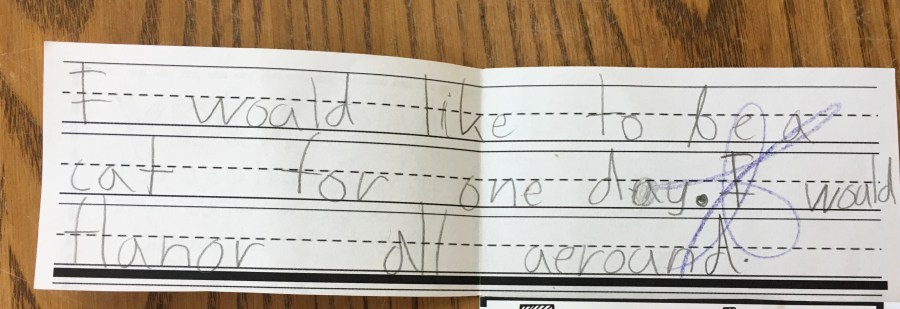 I would like to be a
cat for one day. I would
flanor all aeround.